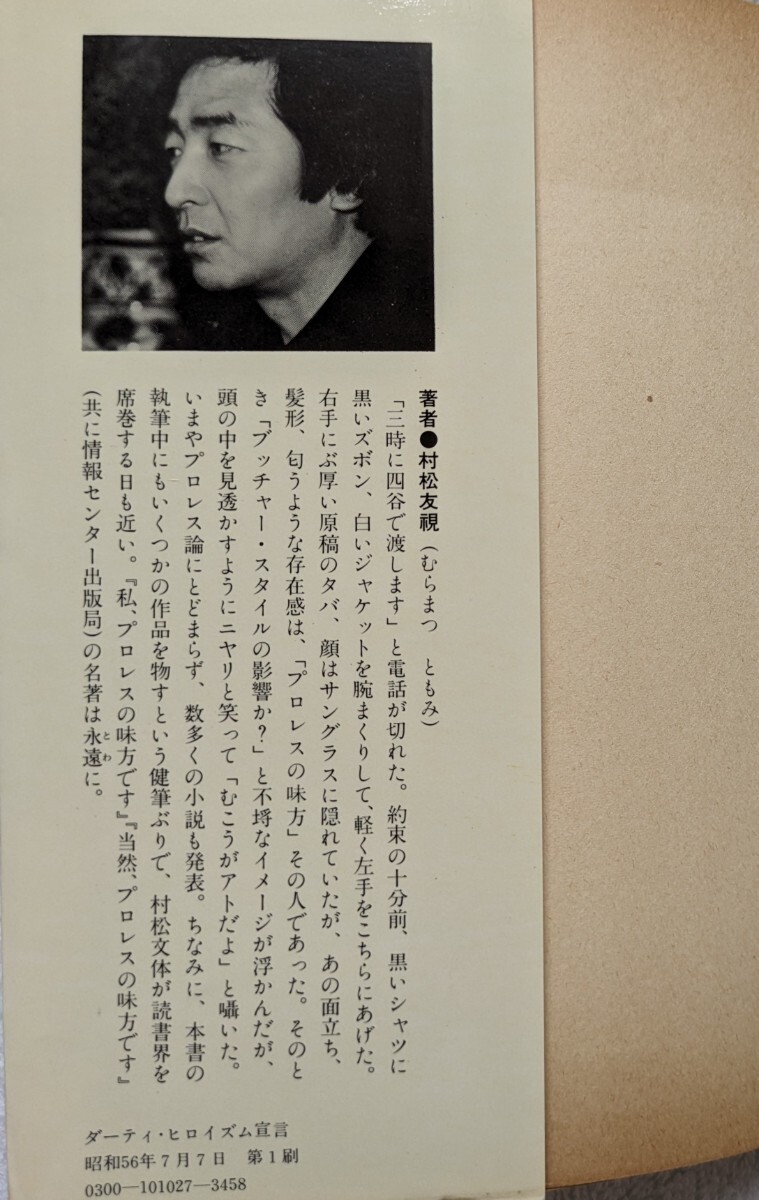 著者●村松友視(むらまつ ともみ)
「三時に四谷で渡します」と電話が切れた。約束の十分前、黒いシャツに
黒いズボン、白いジャケットを腕まくりして、軽く左手をこちらにあげた。
右手にぶ厚い原稿のタバ、顔はサングラスに隠れていたが、あの面立ち、
髪形、匂うような存在感は、「プロレスの味方」その人であった。そのと
き「ブッチャー・スタイルの影響か?」と不埒なイメージが浮かんだが、
頭の中を見透かすようにニヤリと笑って「むこうがアトだよ」と囁いた。
いまやプロレス論にとどまらず、数多くの小説も発表。ちなみに、本書の
執筆中にもいくつかの作品を物すという健筆ぶりで、村松文体が読書界を
席巻する日も近い。『私、プロレスの味方です』『当然、プロレスの味方です』
(共に情報センター出版局)の名著は永遠に。
とわ
ダーティ・ヒロイズム宣言
昭和56年7月7日 第1刷
0300—101027—3458